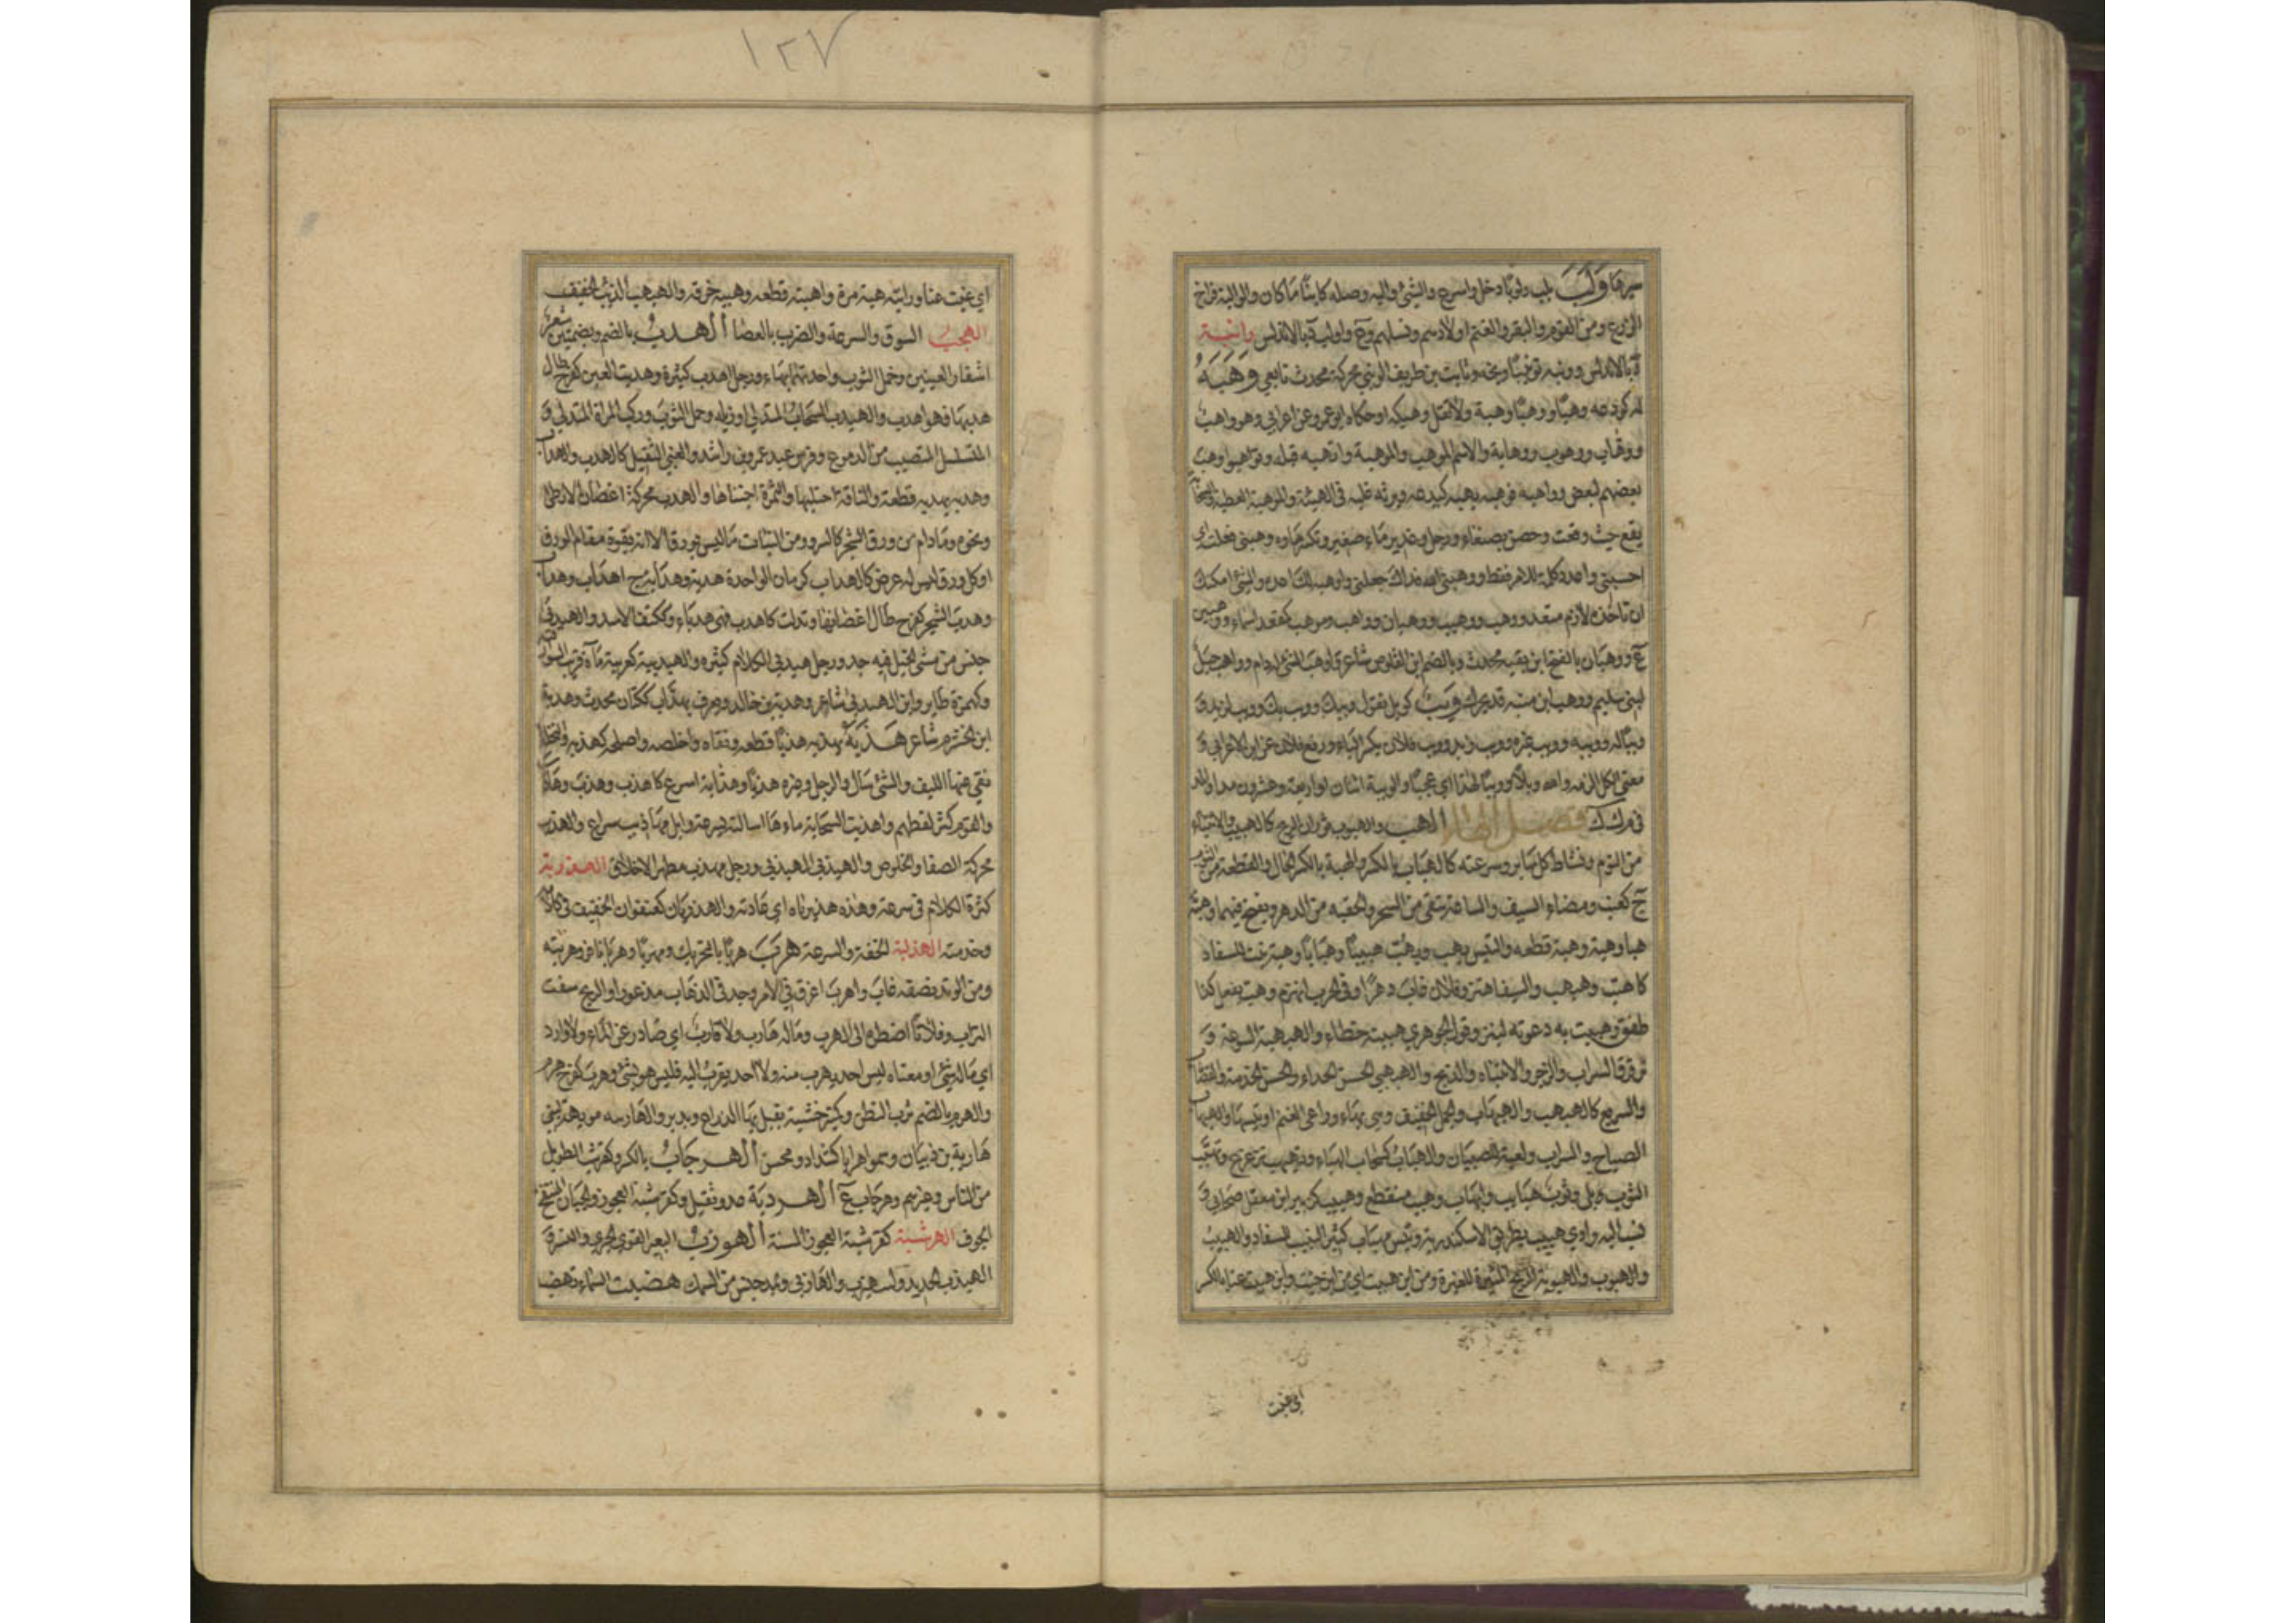 ١٢٧
سيرها وَلَبَ يلب ولوبًا دخل واسرع والشئ واليه وصله كائنًا ما كان والوالبة فراخ
الزرع ومن القوم والبقر والغنم اولادهم ونسلهم وع واولبة د بالاندلس وانبة
ة بالاندلس وونبه توبيبًا وبخه وثابت بن طريف الونبي محركة محدث تابعي وَهَبَهُ
له كودعه وهبًا ووهبًا وهبة ولا تقل وهبكه او حكاه ابو عمرو عن اعرابي وهو واهب
ووهاب ووهوب ووهابة والاسم الموهب والموهبة واتهبه قبله وتواهبوا وهب
بعضهم لبعض وواهبه فوهبه يهبه كيدعه ويرثه غلبه في الهبة والموهبة العطية والسحابة
يقع حيث وقعت وحصن بصنعاء ورجل وغدير ماء صغير وتكسر هاؤه وهبني فعلت اي
احسبني واعددني كلمة للامر فقط ووهبني الله فداك جعلني واوهبه لك اعده والشئ امكنك
ان تاخذه لازم متعد ووهب ووهيب ووهبان وواهب وموهب كمقعد اسماء ووهبين
ع ووهبان بالفتح ابن بقية محدث وبالضم ابن القلوص شاعر واوهب الشئ له دام وواهب جبل
لبني سليم ووهب ابن منبه قد يحرك وَيْبٌ كويل تقول ويبك وويب بك وويب لزيد و
ويبًا له وويبه وويب غيره وويب زيد وويب فلان بكسر الباء ورفع فلان عن ابن الاعرابي و
معنى الكل الزمه الله ويلاً وويبًا لهذا اي عجبًا والويبة اثنان او اربعة وعشرون مدا والمد
في م ك ك فصل الهاء الهب والهبوب ثوران الريح كالهبيب والانتباه
من النوم ونشاط كل سائر وسرعته كالهباب بالكسر والهبة بالكسر الحال والقطعة من الثوب
ج كعنب ومضاء السيف والساعة تبقى من السحر والحقبة من الدهر ويفتح فيهما وهبه
هبا وهبة وهبة قطعه والتيس يهب ويهب هبيبًا وهبابًا وهبة نب للسفاد
كاهتب وهبهب والسيف اهتز وفلان غاب دهرًا وفي الحرب انهزم وهب يفعل كذا
طفق وهببت به دعوته لينزو قول الجوهري هببته خطاء والهبهبة السرعة و
ترقرق السراب والزجر والانتباه والذبح والهبهبي الحسن الحداء والحسن الخدمة والقصاب
والسريع كالهبهب والهبهاب والجمل الخفيف وهي بهاء وراعي الغنم او تيسها والهبهاب
الصياح والسراب ولعبة لصبيان والهباب كسحاب الهباء وتهبهب تزعزع وتهبب
الثوب بلي وثوب هبايب واهباب وهبب متقطع وهبيب كزبير ابن معقل صحابي و
نسب اليه وادي هبيب بطريق الاسكندرية وتيس مهباب كثير النبيب للسفاد والهبيب
والهبوب والهبوبة الريح المثيرة للغبرة ومن اين هببت اي من اين جئت واين هببت عنا بالكسر
اي غبت
اي غبت عنا ورايته هبة مرة واهتبه قطعه وهببه خرقه والهبهب الذئب الخفيف
الهجب السوق والسرعة والضرب بالعصا الهدب بالضم وبضمتين شعر
اشفار العينين وخمل الثوب واحدتهما بهاء ورجل اهدب كثيره وهدبت العين كفرح طال
هدبها فهو اهدب والهيدب السحاب المتدلي او ذيله وخمل الثوب وركب المراة المتدلي و
المتسلسل المنصب من الدموع وفرس عبد عمرو بن راشد والعيي الثقيل كالهدب والهداب
وهدبه يهدبه قطعه والناقة احتلبها والثمرة اجتناها والهدب محركة اغصان الارطى
ونحوه وما دام من ورق الشجر كالسرو ومن النبات ما ليس بورق الا انه يقوم مقام الورق
او كل ورق ليس له عرض كالهداب كرمان الواحدة هدبة وهدابة ج اهداب وهداب
وهدب الشجر كفرح طال اغصانها وتدلت كاهدب فهي هدباء وككتف الاسد والهيدبى
جنس من مشى الخيل فيه جد ورجل هيدبي الكلام كثيره والهيدبية كعربية ماءة قرب السوارقية
وكهمزة طاير وابن الهيدبى شاعر وهدبة بن خالد ويعرف بهداب ككتان محدث وهدبة
ابن الخشرم شاعر هَذَبَهُ يهذبه هذبًا قطعه ونقاه واخلصه واصلحه كهذبه والنخلة
نقى عنها الليف والشئ سال والرجل وغيره هذبًا وهذابة اسرع كاهذب وهذب وهاذب
والقوم كثر لغطهم واهذبت السحابة ماءها اسالته بسرعة وابل مهاذيب سراع والهذب
محركة الصفا والخلوص والهيذبى الهيدبى ورجل مهذب مطهر الاخلاق الهذربة
كثرة الكلام في سرعة وهذه هذيرباه اي عادته والهذربان كعنفوان الخفيف في كلامه
وخدمته الهذلبة الخفة والسرعة هَرَبَ هربًا بالتحريك ومهربًا وهربانا فر وهربته
ومن الوتد نصفه غاب واهرب اغرق في الامر وجد في الذهاب مذعورا والريح سفت
التراب وفلانًا اضطره الى الهرب وماله هارب ولا قارب اي صادر عن الماء ولا وارد
اي ماله شئ او معناه ليس احد يهرب منه ولا احد يقرب اليه فليس هو بشئ وهرب كفرح هرم
والهرب بالضم ثرب البطن وكمنبر خشبة يقبل بها الزراع ويدبر والهاربية مويهة لبني
هاربة بن ذبيان وسموا هرابا كشداد ومحسن الهرجاب بالكسر وكهرشب الطويل
من الناس وغيرهم وهرجاب ع الهردبة عدو ثقيل وكقرشبة العجوز والجبان المنتفخ
الجوف الهرشبة كقرشبة العجوز المسنة الهوزب البعير القوي الجري والنسر و
الهيزب الحديد واسد هيزب والهازبى ويمد جنس من السمك هضبت السماء تهضب